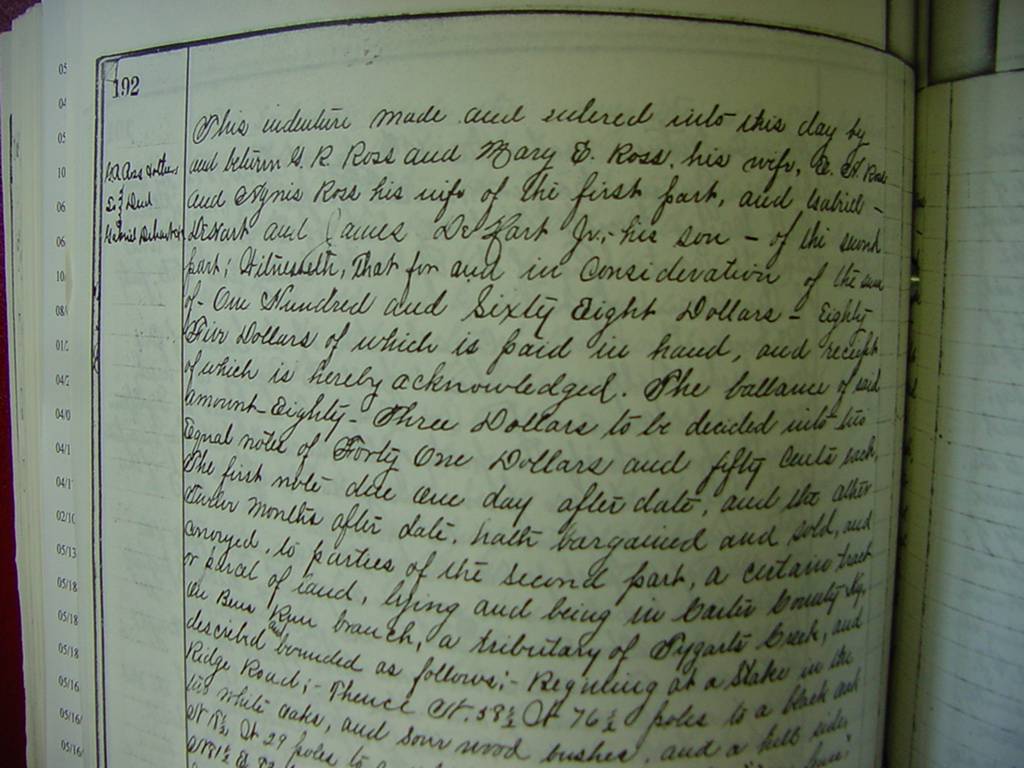 192
This indenture made and entered into this day by
and between G. R. Ross and Mary E. Ross, his wife,
and Agnis Ross his wife of the first part, and Gabriel -
DeHart and James DeHart Jr,- his son - of the second
part; Witnesseth, That for and in Consideration of the sum
of - One Hundred and Sixty Eight Dollars - Eighty
Five Dollars of which is paid in hand, and receipt
of which is hereby acknowledged. The ballance of said
amount - Eighty - Three Dollars to be decided into two
Equal notes of Forty One Dollars and fifty cents each,
The first note due one day after date, and the other
twelve months after date, hath bargained and sold, and
conveyed, to parties of the second part, a certain tract
or parcel of land, lying and being in Carter County Ky,
on Bens Run branch, a tributary of Tygarts Creek, and
described and bounded as follows;- Beginning at a Stake in the
Ridge Road;- Thence N. 58½ W 76½ poles to a black oak
two white oaks, and sour wood bushes, and a hill side,
29 poles to
& Deed
05
04
05
10
06
06
10
08/
01/
04/2
04/0
04/1
04/1
02/10
05/13
05/18
05/18
05/18
05/16
05/16/
05/16/